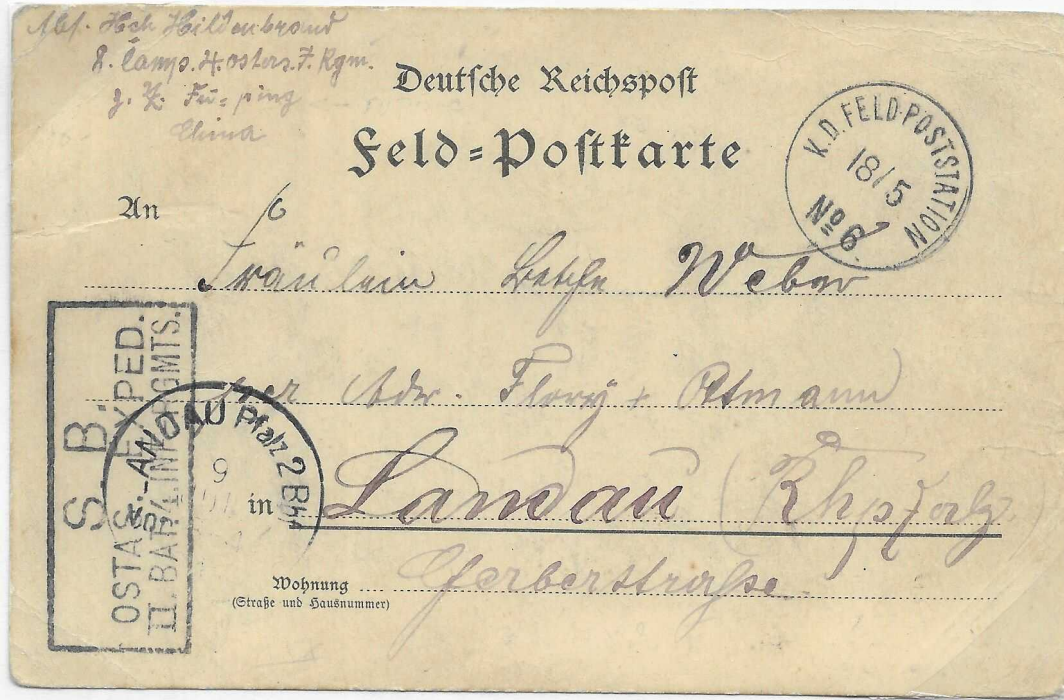 Abs. Hch Hildenbrand
8. Comp. 4. ostas. I. Rgm.
z. Z. Fu-ping
China
Deutsche Reichspost
Feld-Postkarte
K.D. FELD-POSTSTATION
18/5
No 6.
An
Fräulein Weber
per Adr. Flory +
in Landau (Rhpfalz)
Gerberstraße.
Wohnung
(Straße und Hausnummer)
S. B.
OSTAS. EXPED.
II. BAT. 4. INF. RGMTS.
LANDAU Pfalz 2 Bhf
9